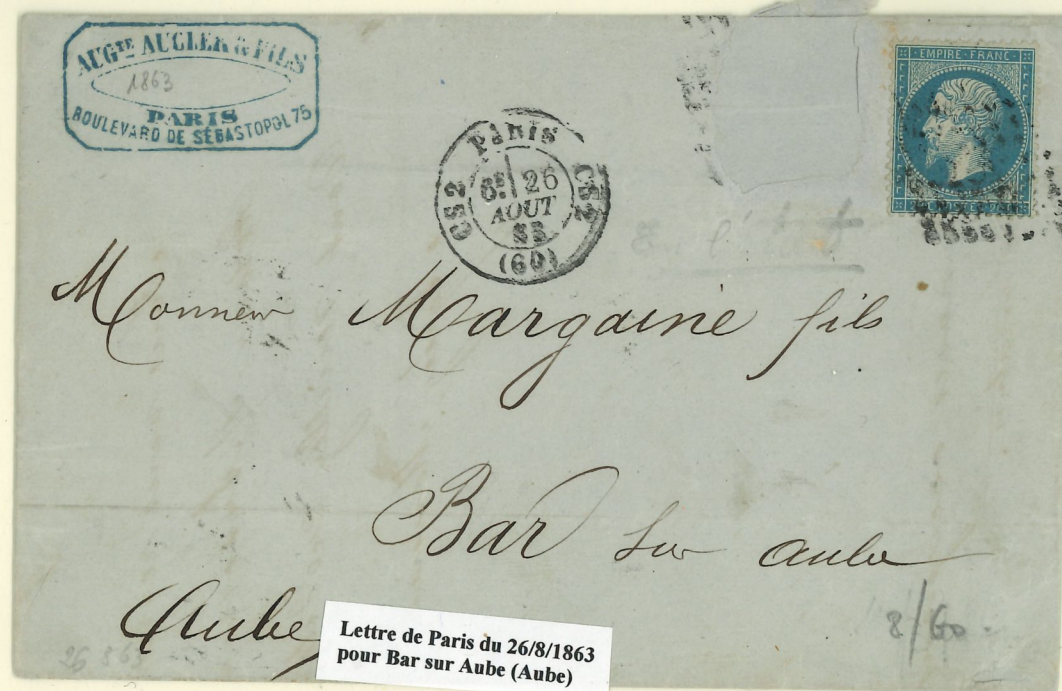 AUGTE AUGIER & FILS
1863
PARIS
BOULEVARD DE SÉBASTOPOL 75
PARIS
CS2 CS2
6E 26
AOUT
(60)
EMPIRE FRANC
Monsieur Margaine fils
Bar sur aube
Aube
8/60
26 863
Lettre de Paris du 26/8/1863
pour Bar sur Aube (Aube)